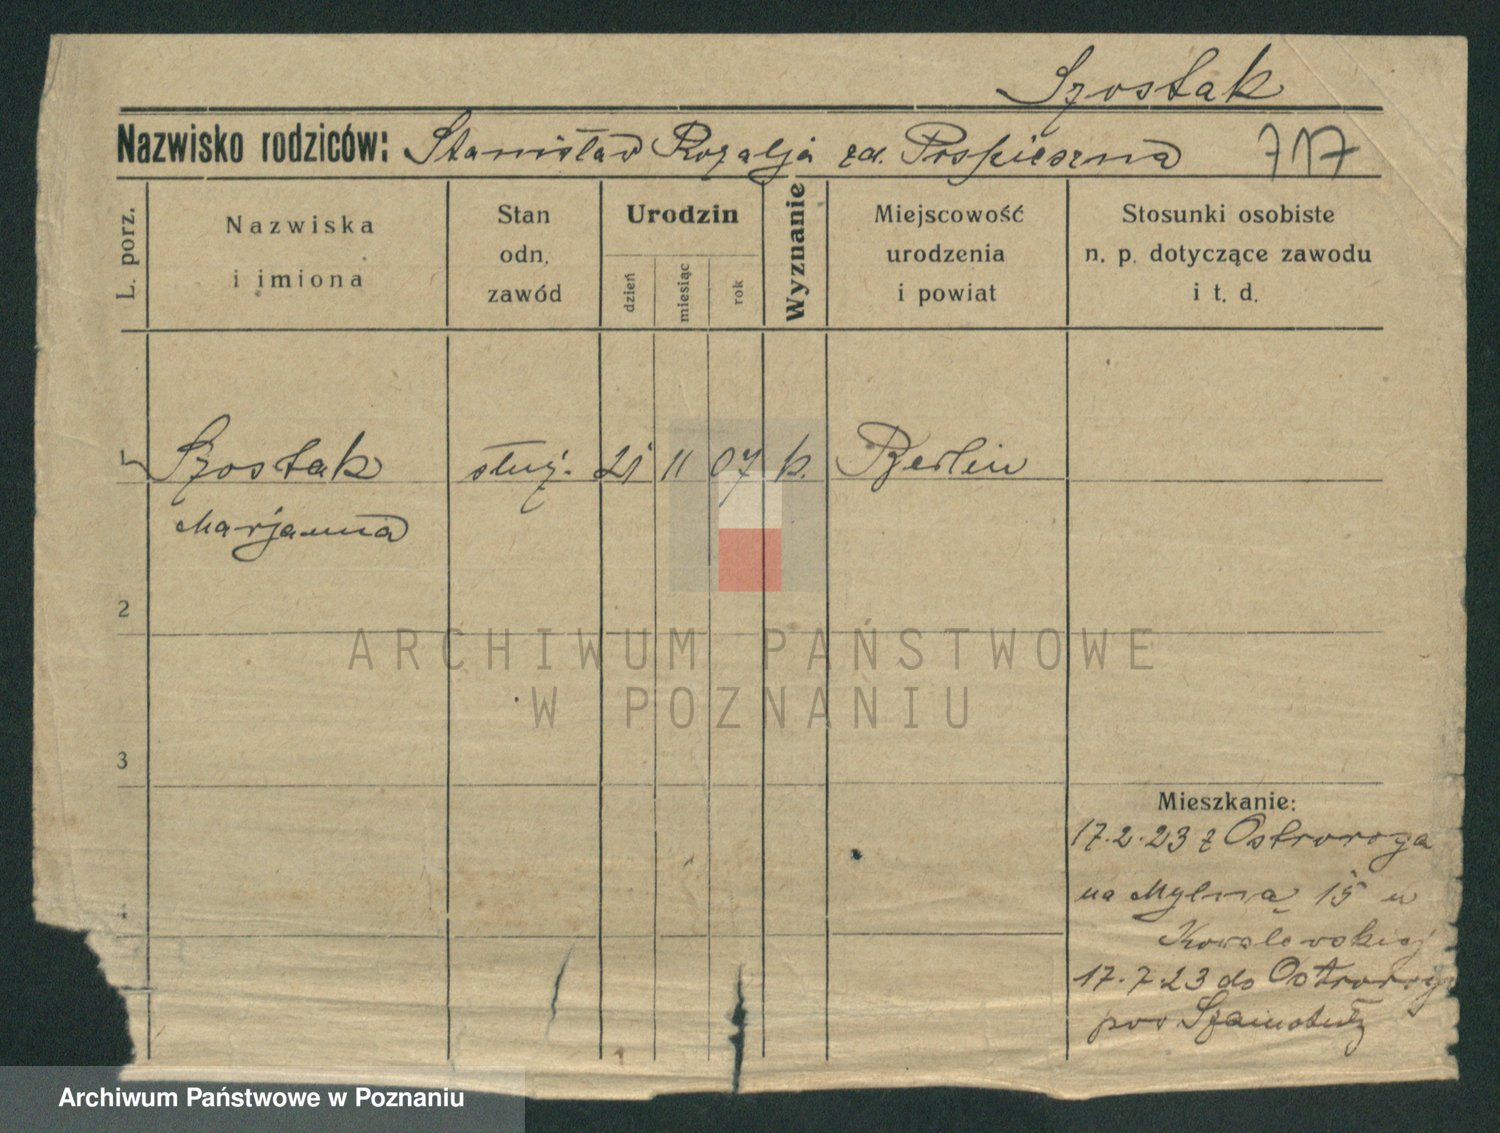 Szostak
Nazwisko rodziców: Stanisław Rozalja zd. Pospieszna
717
L. porz.
Nazwiska
i imiona
Stan
odn.
zawód
Urodzin
dzień
miesiąc
rok
Wyznanie
Miejscowość
urodzenia
i powiat
Stosunki osobiste
n. p. dotyczące zawodu
i t. d.
1 Szostak służ. 21 11 07 k. Berlin
Marjanna
2
ARCHIWUM PAŃSTWOWE
W POZNANIU
3
Mieszkanie:
17.2.23 z Ostroroga
na Mylną 15 u
Kowalewskiej
4
17.7.23 do Ostroroga
pow Szamotuły
Archiwum Państwowe w Poznaniu